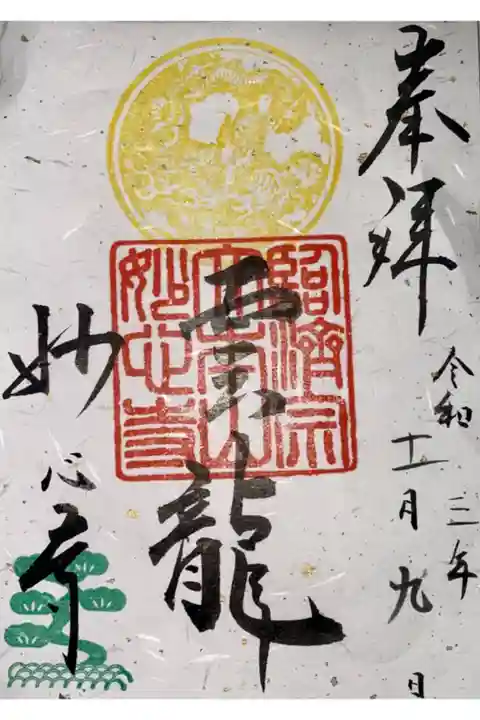 奉拝
令和三年
十一月九日
雲龍
臨濟宗
正法山
妙心寺
妙心寺